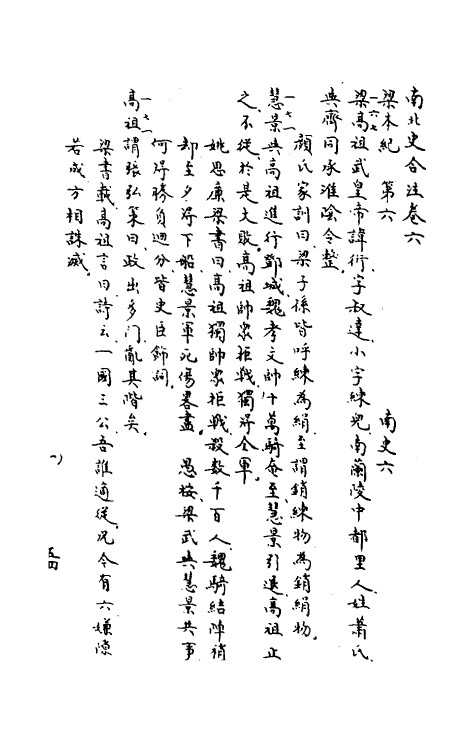 南北史合注卷六
梁本紀 第六 南史六
一六七
梁高祖武皇帝諱衍字叔達小字練兒南蘭陵中都里人姓蕭氏
與齊同承淮陰令整
顏氏家訓曰梁子孫皆呼練為絹至謂銷練物為銷絹物
一七一
慧景與高祖進行鄧城魏孝文帥十萬騎奄至慧景引退高祖止
之不從於是大敗高祖帥眾拒戰獨得全軍
姚思廉梁書曰高祖獨帥眾拒戰殺數千百人魏騎結陣稍
却至夕得下船慧景軍死傷畧盡 愚按梁武與慧景共事
何得勝負迥分皆史臣飾詞
一七一
高祖謂張弘策曰政出多门亂其階矣
梁書載高祖言曰詩云一國三公吾誰適從况今有六嫌隙
若成方相誅滅
一
五四